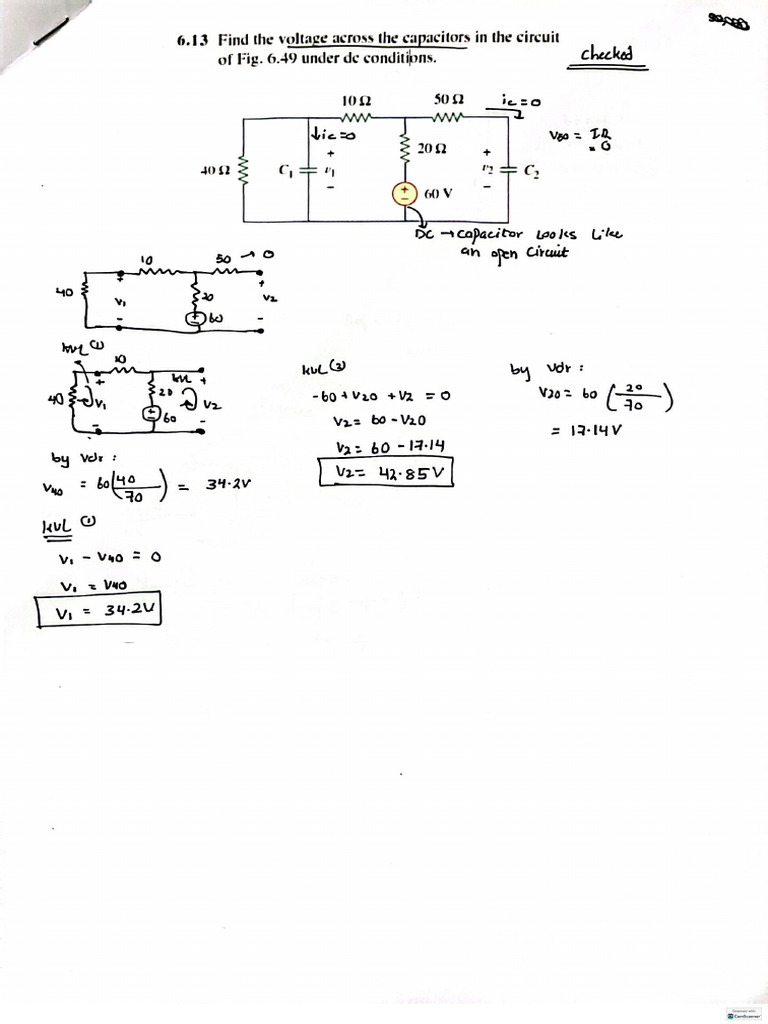 6.13 Find the voltage across the capacitors in the circuit
of Fig. 6.49 under dc conditions.
checked
10 Ω
50 Ω
ic=0
↓ic=0
V50 = IR
= 0
40 Ω
C1
+
v1
−
20 Ω
+
v2
−
C2
+
−
60 V
DC → capacitor looks like
an open circuit
10
50 → 0
40
+
V1
−
20
60
+
V2
−
KVL (1)
10
40
+
V1
−
20
60
KVL
+
V2
−
by vdr :
V40 = 60(40/70) = 34.2V
KVL (1)
V1 − V40 = 0
V1 = V40
V1 = 34.2V
KVL (2)
-60 + V20 + V2 = 0
V2 = 60 − V20
V2 = 60 − 17.14
V2 = 42.85V
by vdr :
V20 = 60 (20/70)
= 17.14V
Scanned with
CamScanner